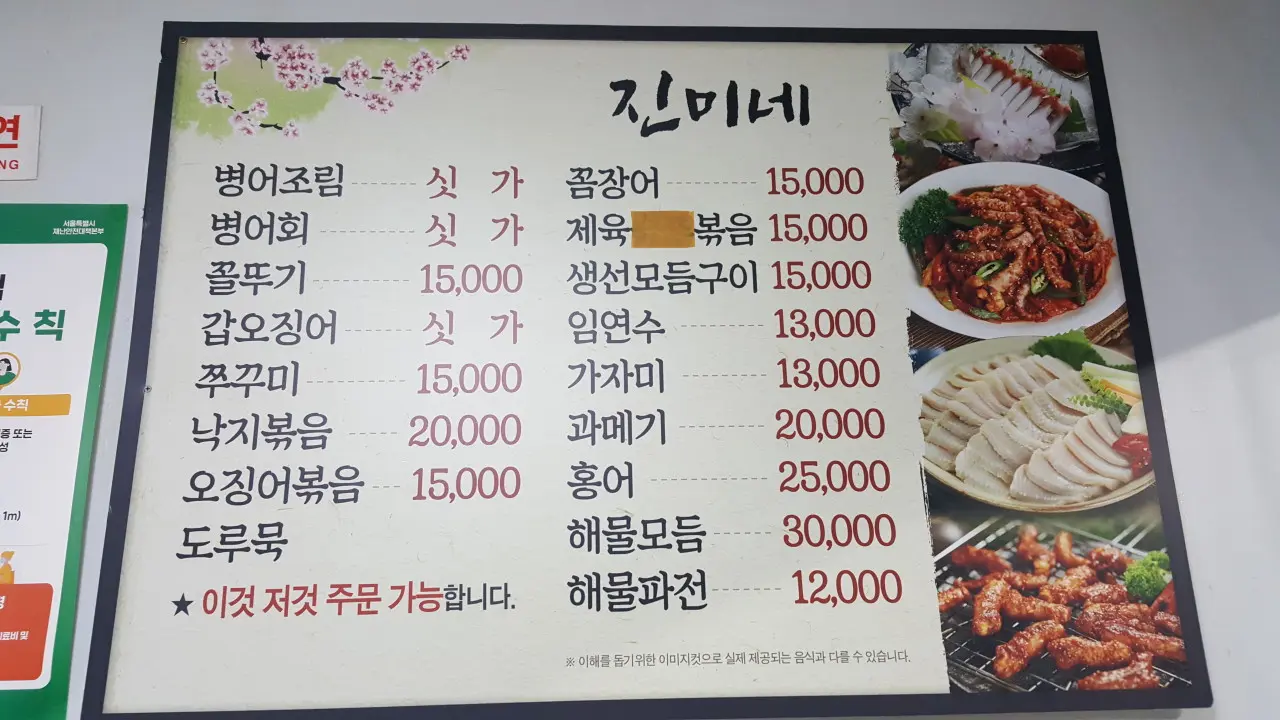 진미네
병어조림 싯 가
병어회 싯 가
꼴뚜기 15,000
갑오징어 싯 가
쭈꾸미 15,000
낙지볶음 20,000
오징어볶음 15,000
도루묵
★ 이것 저것 주문 가능합니다.
꼼장어 15,000
제육 볶음 15,000
생선모듬구이 15,000
임연수 13,000
가자미 13,000
과메기 20,000
홍어 25,000
해물모듬 30,000
해물파전 12,000
※ 이해를 돕기위한 이미지컷으로 실제 제공되는 음식과 다를 수 있습니다.
연
NG
서울특별시
재난안전대책본부
수 칙
수칙
또는
성
1m)
료비 및